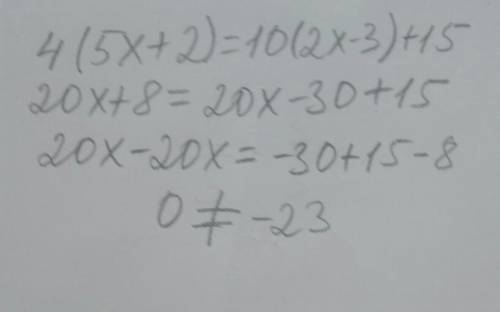 4(5x+2)=10(2x-3)+15
20x+8=20x-30+15
20x-20x=-30+15-8
0≠-23